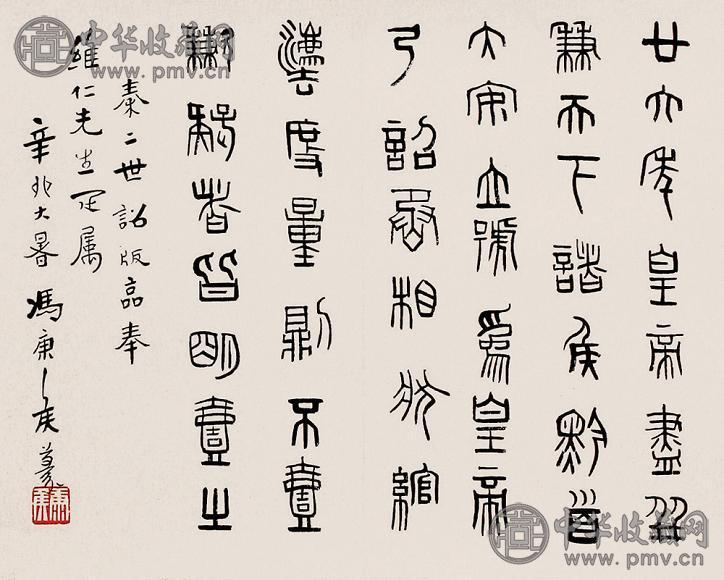 廿六年皇帝盡并
兼天下諸侯黔首
大安立號爲皇帝
乃詔丞相狀綰
灋度量則不壹
歉疑者皆明壹之
秦二世詔版臨奉
維仁先生正属
辛卯大暑馮康侯
中华收藏网
www.pmv.cn
中华收藏网
www.pmv.cn